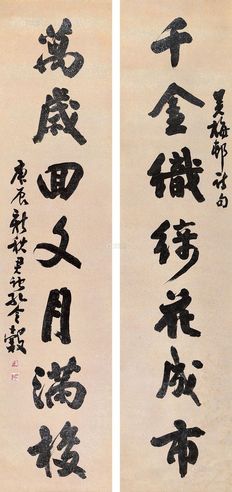 吳梅邨詩句
千金織綺花成市
萬歲回文月滿梭
庚辰新秋君詒孔令穀